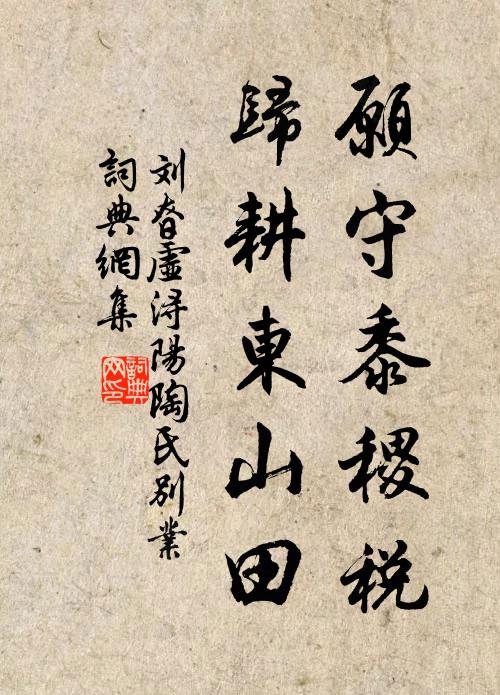 願守黍稷税
歸耕東山田
刘眘虛浔陽陶氏别業
詞典網集
詞典網印